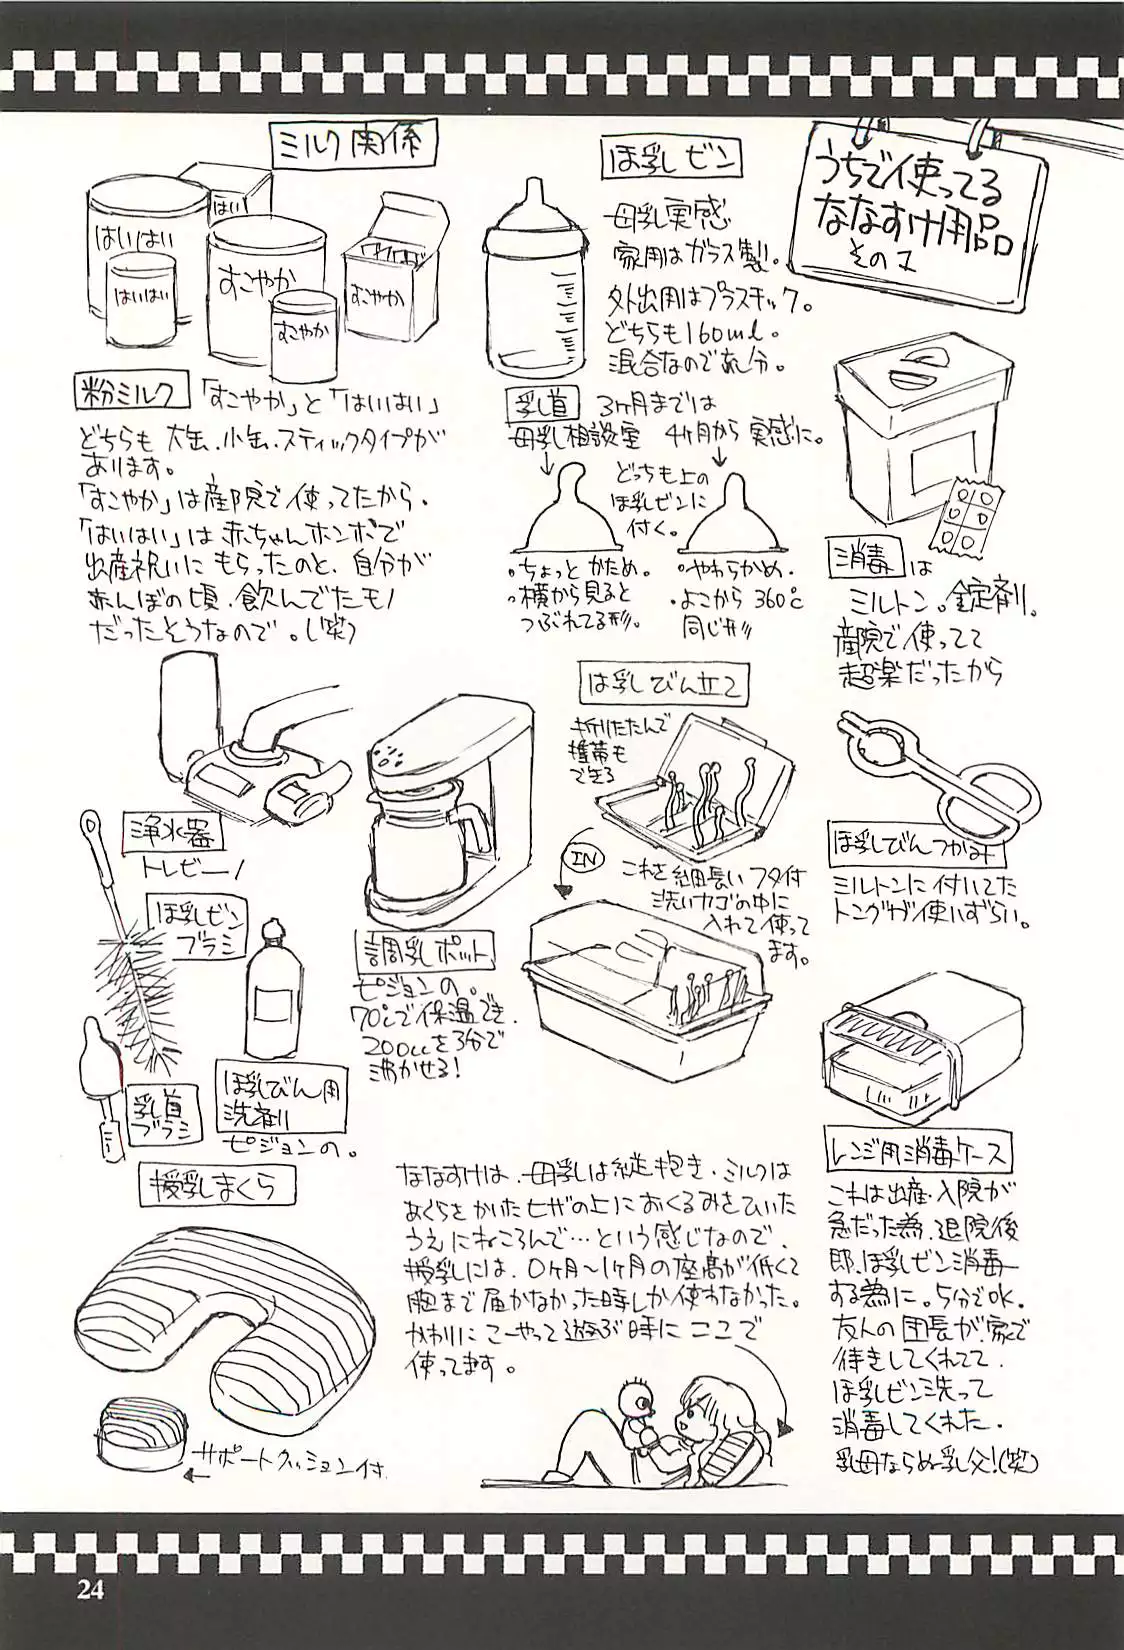 うちで使ってる
ななすけ用品
その1
ミルク関係
はいはい
はい
はいはい
すこやか
すこやか
すこやか
粉ミルク 「すこやか」と「はいはい」
どちらも大缶、小缶、スティックタイプが
あります。
「すこやか」は産院で使ってたから、
「はいはい」は赤ちゃんホンポで
出産祝いにもらったのと、自分が
赤んぼの頃、飲んでたモノ
だったそうなので。(笑)
ほ乳ビン
母乳実感
家用はガラス製。
外出用はプラスチック。
どちらも160ml。
混合なのであし分。
乳首 3ヶ月までは
母乳相談室 4ヶ月から実感に。
どっちも上の
ほ乳ビンに
付く。
・ちょっとかため。
・横から見ると
つぶれてる形。
・やわらかめ.
・よこから360℃
同じ形
消毒は
ミルトン。錠剤。
産院で使ってて
超楽だったから
浄水器
トレビーノ
ほ乳ビン
ブラシ
乳首
ブラシ
ほ乳びん用
洗剤
ピジョンの。
調乳ポット
ピジョンの。
70℃で保温でき、
200ccを3分で
沸かせる!
ほ乳びん立て
折りたたんで
携帯も
できる
IN
これを細長いフタ付
洗いカゴの中に
入れて使って
ます。
ほ乳びんつかみ
ミルトンに付いてた
トングが使いずらい。
レンジ用消毒ケース
これは出産・入院が
急だった為、退院後
即、ほ乳ビン消毒
する為に。5分でOK.
友人の団長が、家で
待きしてくれてて、
ほ乳ビン洗って
消毒してくれた.
乳母ならぬ乳父!(笑)
授乳まくら
サポートクッション付
ななすけは、母乳は縦抱き、ミルクは
あぐらをかいたヒザの上におくるみをひいた
うえにねころんで…という感じなので、
授乳には、0ヶ月~1ヶ月の座高が低くて
胸まで届かなかった時しか使わなかった。
かわりにこーやって遊ぶ時にここで
使ってます。
24